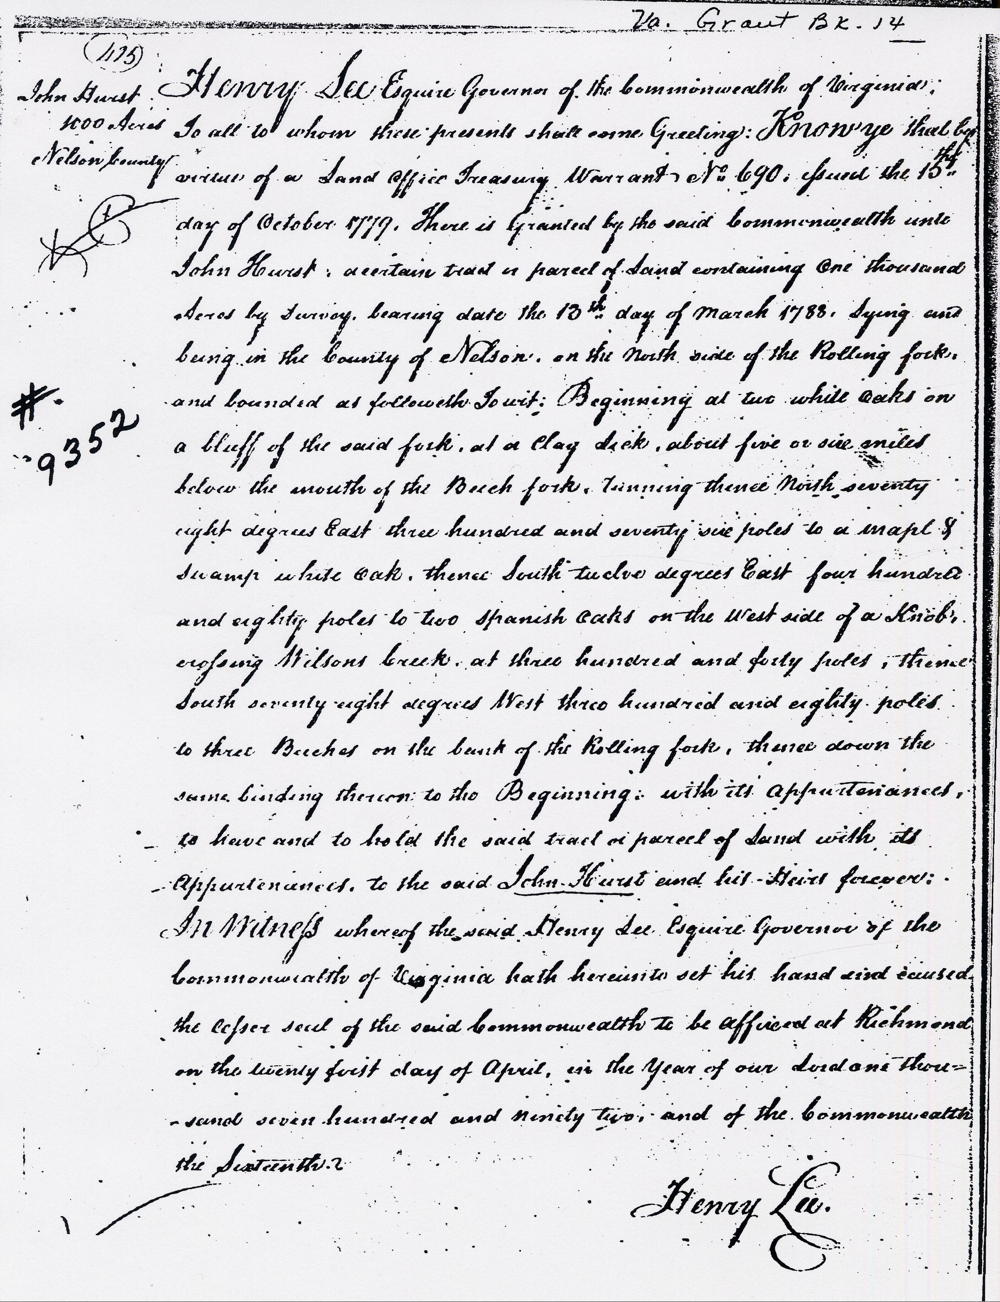 Va. Grant Bk. 14
415
John Hurst
1000 Acres
Nelson County
#.
9352
Henry Lee Esquire Governor of the Commonwealth of Virginia;
To all to whom these presents shall come Greeting: Know ye that by
virtue of a Land Office Treasury Warrant No 690. issued the 15th
day of October 1779. There is Granted by the said Commonwealth unto
John Hurst: a certain tract or parcel of Land containing One thousand
Acres by Survey, bearing date the 13th day of March 1788. Lying and
being in the County of Nelson. on the North side of the Rolling fork.
and bounded as followeth Towit: Beginning at two white Oaks on
a bluff of the said fork. at a Clay lick. about five or six miles
below the mouth of the Beech fork. running thence North seventy
eight degrees East three hundred and seventy six poles to a mapl &
swamp white Oak. thence South twelve degrees East four hundred
and eighty poles to two Spanish Oaks on the West side of a Knob.
crossing Wilsons Creek. at three hundred and forty poles; thence
South seventy eight degrees West three hundred and eighty poles
to three Beeches on the bank of the Rolling fork, thence down the
same binding thereon to the Beginning: with its Appurtenances,
to have and to hold the said tract or parcel of Land with its
Appurtenances. to the said John Hurst and his Heirs forever:
In Witness whereof the said Henry Lee Esquire Governor of the
Commonwealth of Virginia hath hereunto set his hand and caused
the lesser seal of the said Commonwealth to be affixed at Richmond
on the twenty first day of April, in the Year of our Lord one thou=
-sand seven hundred and ninety two. and of the Commonwealth
the Sixteenth.
Henry Lee.